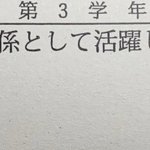 第3学年
係として活躍し